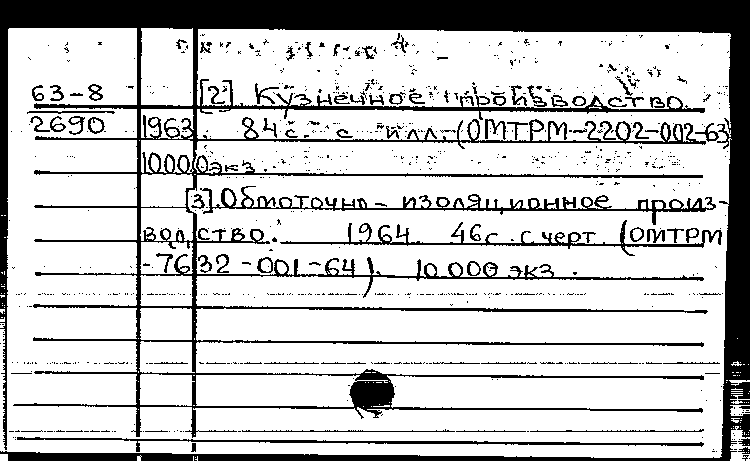 63-8 [2]. Кузнечное производство.
2690 1963. 84с. с илл. (ОМТРМ-2202-002-63)
10000экз.
[3]. Обмоточно-изоляционное произ-
водство. 1964. 46с. с черт. (ОМТРМ
-7632-001-64). 10.000 экз.